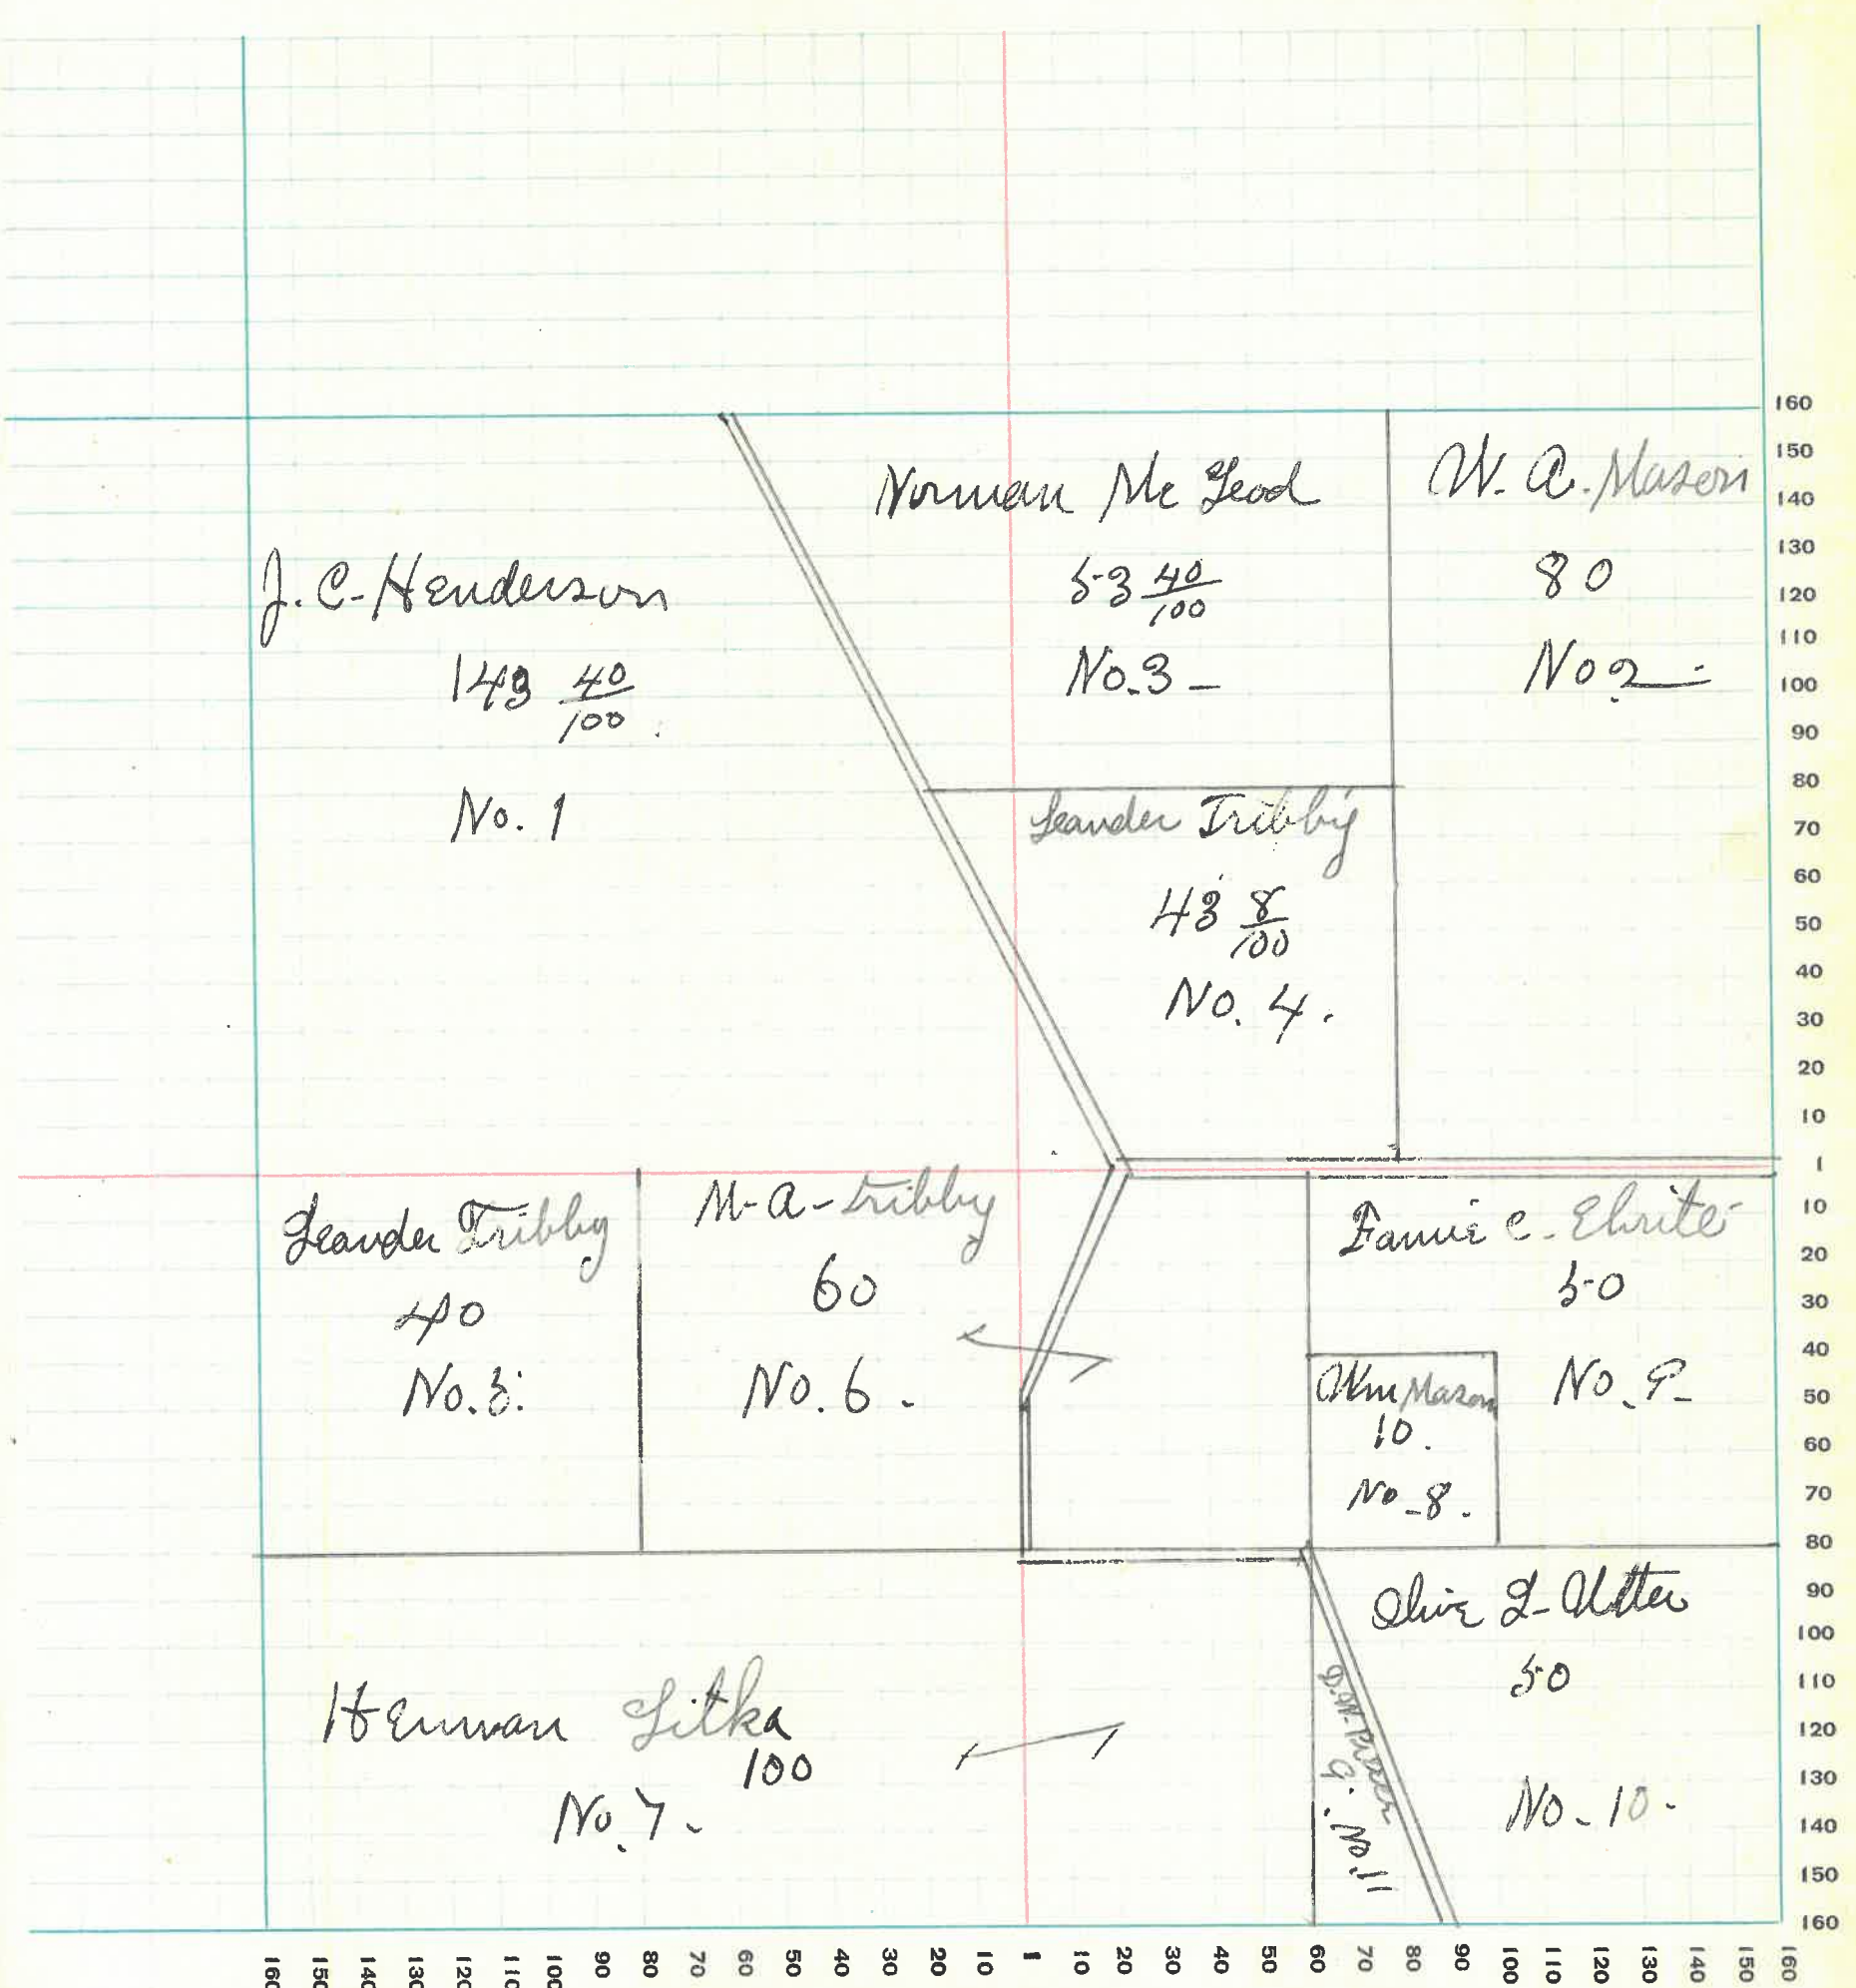 J. C. Henderson
143 40/100
No. 1
Norman Mc Leod
53 40/100
No. 3
W. A. Mason
80
No 2
Leander Tribby
43 8/100
No. 4.
Leander Tribby
40
No. 5.
M. A. Tribby
60
No. 6.
Fannie C.
50
No. 9
Wm Mason
10.
No. 8.
Herman Litka
100
No. 7.
Olive L. Utter
50
No. 10.
D. W.
9. No. 11
160
150
140
130
120
110
100
90
80
70
60
50
40
30
20
10
1
10
20
30
40
50
60
70
80
90
100
110
120
130
140
150
160
160 150 140 130 120 110 100 90 80 70 60 50 40 30 20 10 1 10 20 30 40 50 60 70 80 90 100 110 120 130 140 150 160